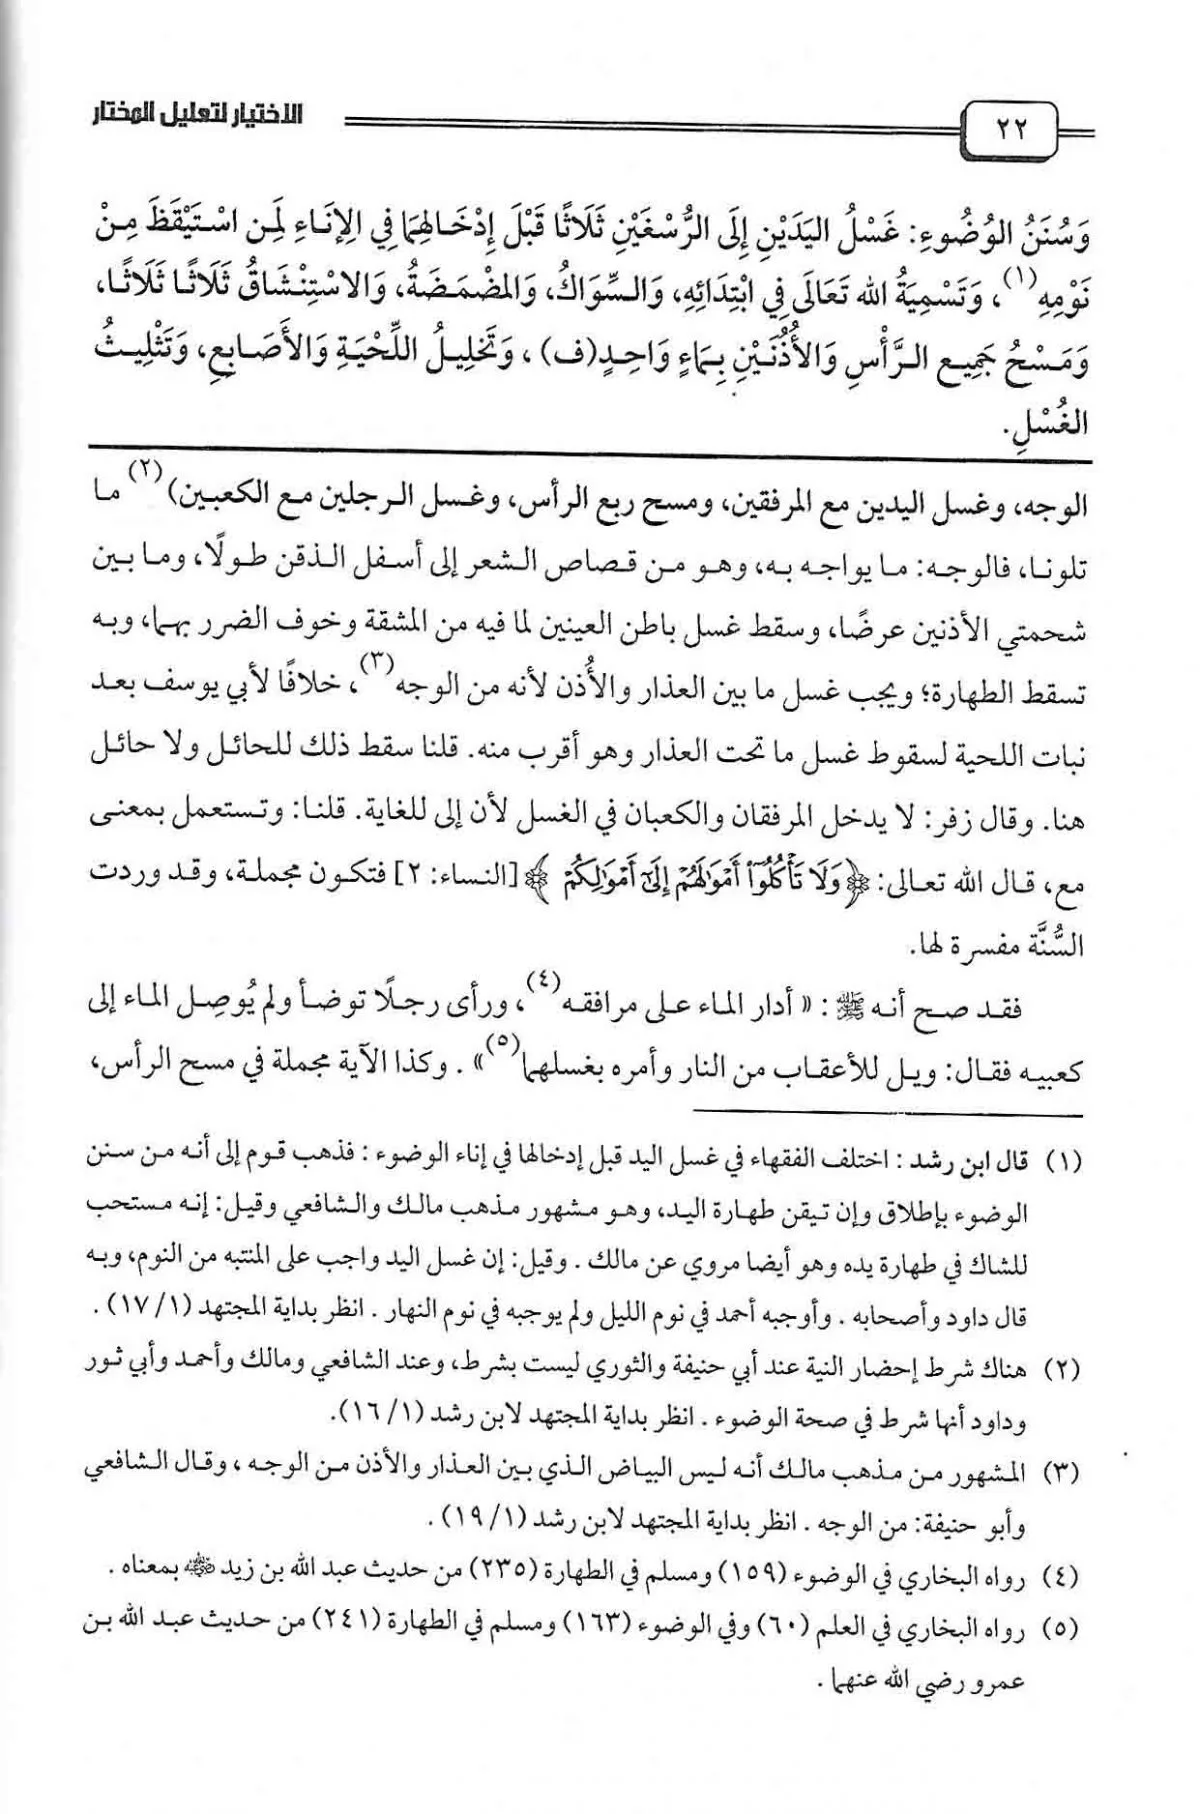 ٢٢
الاختيار لتعليل المختار
وَسُنَنُ الوُضُوءِ: غَسْلُ اليَدَيْنِ إِلَى الرُّسْغَيْنِ ثَلَاثًا قَبْلَ إِدْخَالِهِمَا فِي الإِنَاءِ لِمَن اسْتَيْقَظَ مِنْ
نَوْمِهِ(١)، وَتَسْمِيَةُ الله تَعَالَى فِي ابْتِدَائِهِ، وَالسِّوَاكُ، وَالمَضْمَضَةُ، وَالاسْتِنْشَاقُ ثَلَاثًا ثَلَاثًا،
وَمَسْحُ جَمِيعِ الرَّأْسِ وَالأُذُنَيْنِ بِمَاءٍ وَاحِدٍ(ف) ، وَتَخْلِيلُ اللِّحْيَةِ وَالأَصَابِعِ، وَتَثْلِيثُ
الغُسْلِ.
الوجه، وغسل اليدين مع المرفقين، ومسح ربع الرأس، وغسل الرجلين مع الكعبين)(٢) ما
تلونا، فالوجه: ما يواجه به، وهو من قصاص الشعر إلى أسفل الذقن طولًا، وما بين
شحمتي الأذنين عرضًا، وسقط غسل باطن العينين لما فيه من المشقة وخوف الضرر بهما، وبه
تسقط الطهارة؛ ويجب غسل ما بين العذار والأُذن لأنه من الوجه(٣)، خلافًا لأبي يوسف بعد
نبات اللحية لسقوط غسل ما تحت العذار وهو أقرب منه. قلنا سقط ذلك للحائل ولا حائل
هنا. وقال زفر: لا يدخل المرفقان والكعبان في الغسل لأن إلى للغاية. قلنا: وتستعمل بمعنى
مع، قال الله تعالى: ﴿وَلَا تَأْكُلُوٓاْ أَمْوَٰلَهُمْ إِلَىٰٓ أَمْوَٰلِكُمْ ﴾ [النساء: ٢] فتكون مجملة، وقد وردت
السُّنَّة مفسرة لها.
فقد صح أنه ﷺ : « أدار الماء على مرافقه(٤)، ورأى رجلًا توضأ ولم يُوصِل الماء إلى
كعبيه فقال: ويل للأعقاب من النار وأمره بغسلهما(٥)» . وكذا الآية مجملة في مسح الرأس،
(١) قال ابن رشد : اختلف الفقهاء في غسل اليد قبل إدخالها في إناء الوضوء : فذهب قوم إلى أنه من سنن
الوضوء بإطلاق وإن تيقن طهارة اليد، وهو مشهور مذهب مالك والشافعي وقيل: إنه مستحب
للشاك في طهارة يده وهو أيضا مروي عن مالك . وقيل: إن غسل اليد واجب على المنتبه من النوم، وبه
قال داود وأصحابه . وأوجبه أحمد في نوم الليل ولم يوجبه في نوم النهار . انظر بداية المجتهد (١/ ١٧) .
(٢) هناك شرط إحضار النية عند أبي حنيفة والثوري ليست بشرط، وعند الشافعي ومالك وأحمد وأبي ثور
وداود أنها شرط في صحة الوضوء . انظر بداية المجتهد لابن رشد (١/ ١٦).
(٣) المشهور من مذهب مالك أنه ليس البياض الذي بين العذار والأذن من الوجه ، وقال الشافعي
وأبو حنيفة: من الوجه . انظر بداية المجتهد لابن رشد (١/ ١٩) .
(٤) رواه البخاري في الوضوء (١٥٩) ومسلم في الطهارة (٢٣٥) من حديث عبد الله بن زيد بمعناه .
(٥) رواه البخاري في العلم (٦٠) وفي الوضوء (١٦٣) ومسلم في الطهارة (٢٤١) من حديث عبد الله بن
عمرو رضي الله عنهما .